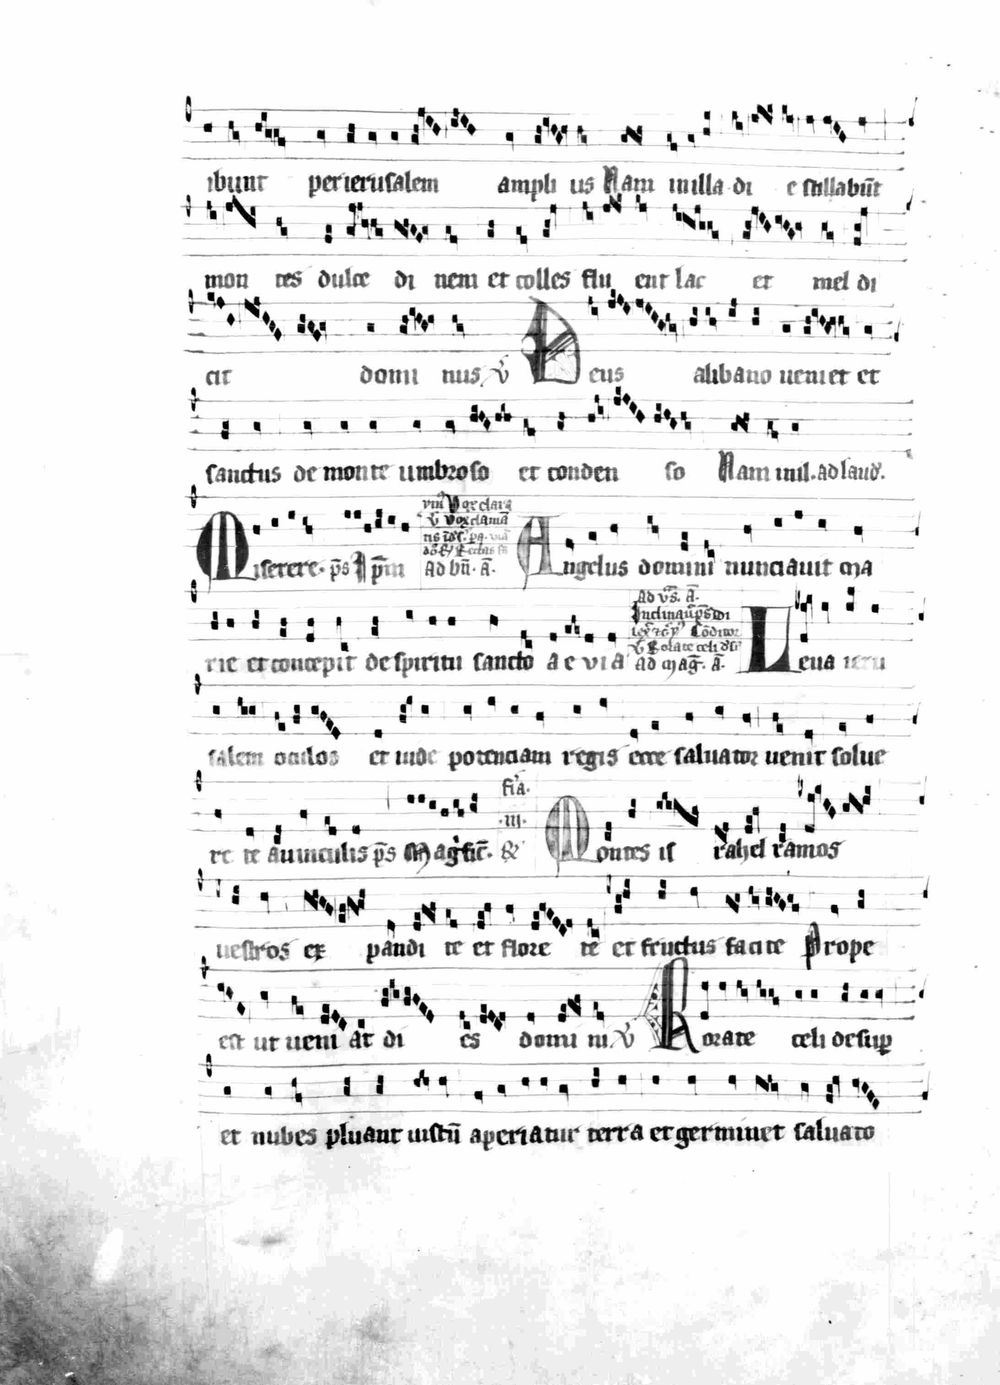 ibunt per ierusalem ampli us Nam in illa di e stillabūt
mon tes dulce di nem et colles flu ent lac et mel di
cit domi nus ℣ Deus a libano ueniet et
sanctus de monte umbroso et conden so Nam in il. ad laud.
vm̄ Vox clara
℣ Vox clamā
Miserere. p̄s Ip̄m
Ad bn̄. a̅.
Angelus domini nunciauit ma
Ad vs̄. a̅.
rie et concepit de spiritu sancto a e v i a
℣ Rorate celi
ad mag̅. a̅.
Leua ieru
salem oculos et uide potenciam regis ecce saluator uenit solue
fr̄ia.
.iii.
re te a uinculis p̄s Magn̄fic̄. &
Montes is rahel ramos
uestros ex pandi te et flore te et fructus facite Prope
est ut ueni at di es domi ni ℣ Rorate celi desuꝑ
et nubes pluant iustū aperiatur terra et germinet saluato